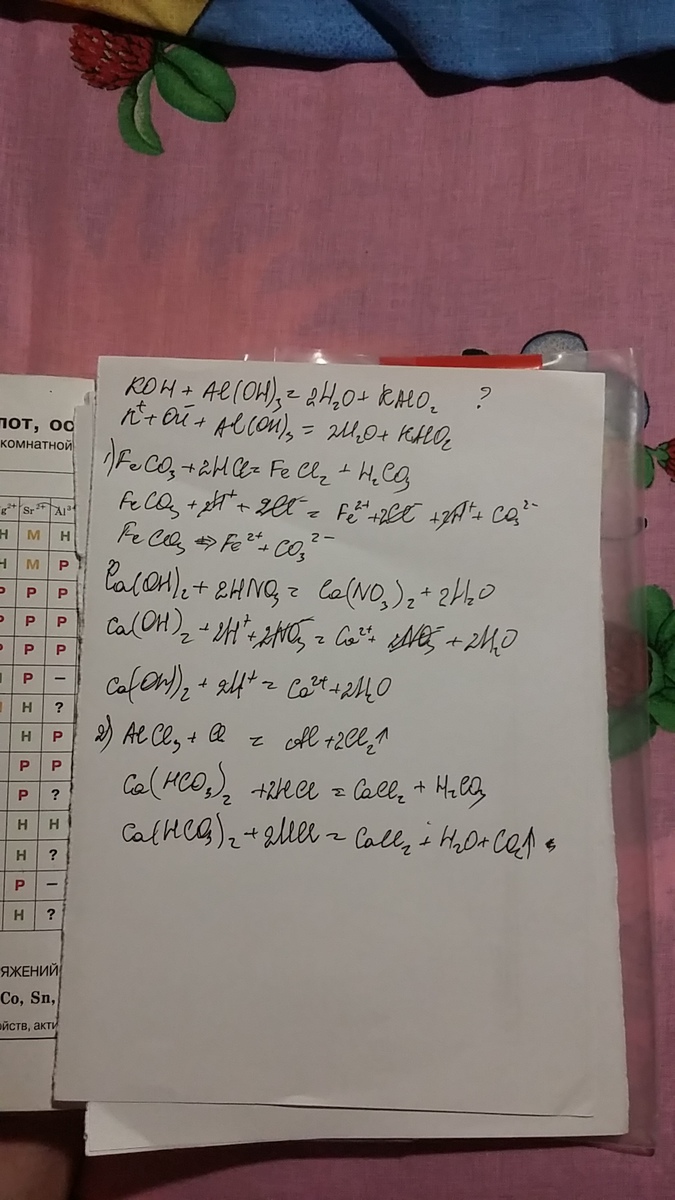 лот, ос
комнатной
g²⁺ Sr²⁺ Al³
Н М Н
М Р
Р Р Р
Р Р Р
Р Р Р
Р –
Н ?
Н Р
Р Р
Р ?
Н Н
Н ?
Р –
Н ?
ЯЖЕНИЙ
Co, Sn,
ойств, акти
KOH + Al(OH)₃ = 2H₂O + KAlO₂ ?
K⁺ + OH⁻ + Al(OH)₃ = 2H₂O + KAlO₂
1) FeCO₃ + 2HCl = FeCl₂ + H₂CO₃
FeCO₃ + 2H⁺ + 2Cl⁻ = Fe²⁺ + 2Cl⁻ + 2H⁺ + CO₃²⁻
FeCO₃ ⇔ Fe²⁺ + CO₃²⁻
Ca(OH)₂ + 2HNO₃ = Ca(NO₃)₂ + 2H₂O
Ca(OH)₂ + 2H⁺ + 2NO₃⁻ = Ca²⁺ + 2NO₃⁻ + 2H₂O
Ca(OH)₂ + 2H⁺ = Ca²⁺ + 2H₂O
2) AlCl₃ + = Al + 2Cl₂↑
Ca(HCO₃)₂ + 2HCl = CaCl₂ + H₂CO₃
Ca(HCO₃)₂ + 2HCl = CaCl₂ + H₂O + CO₂↑